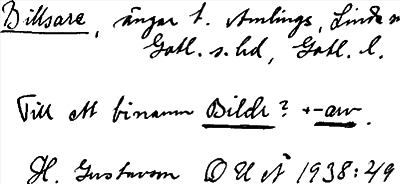 Billsare, ängar t. Amlings, Linde sn
Gotl. s. hd, Gotl. l.
Till ett binamn Bildr? +-arv.
H. Gustavson OUÅ 1938:29